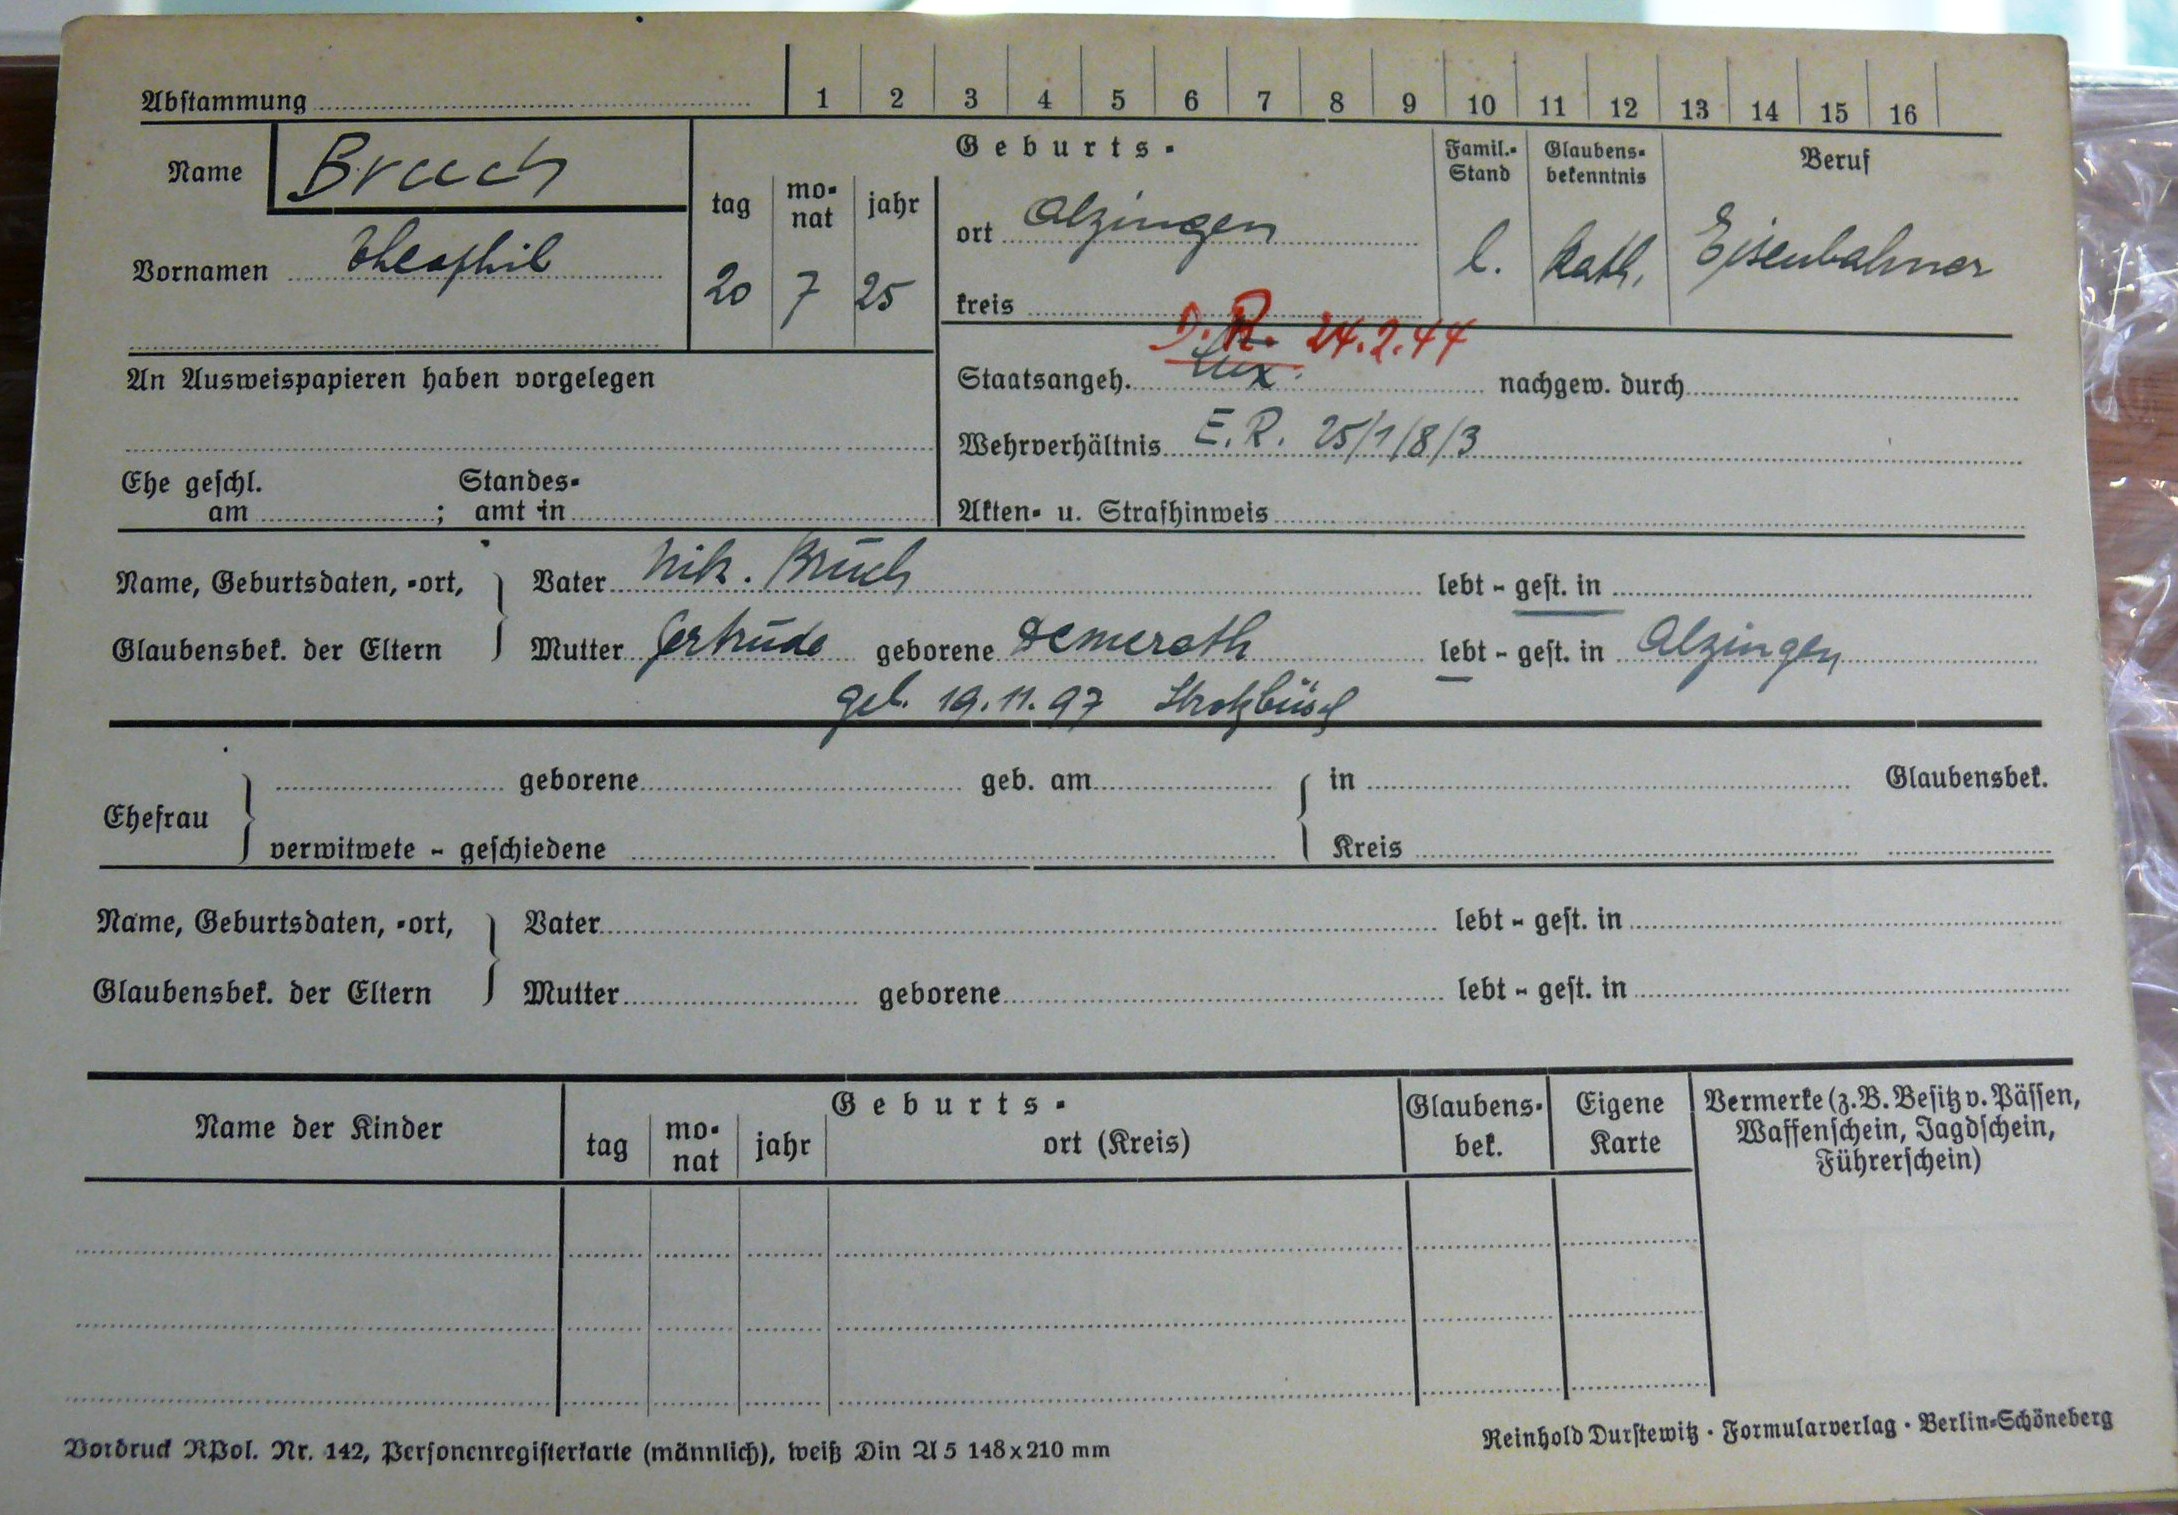 Abstammung 1 2 3 4 5 6 7 8 9 10 11 12 13 14 15 16
Name Bruch
Vornamen Theophil
Geburts-
tag monat jahr
20 7 25
ort Alzingen
kreis
Famil.-Stand
l.
Glaubensbekenntnis
kath.
Beruf
Eisenbahner
An Ausweispapieren haben vorgelegen
D.R. 24.2.44
Staatsangeh. Lux. nachgew. durch
Wehrverhältnis E.R. 25/1/8/3
Ehe geschl. am ; Standesamt in
Akten- u. Strafhinweis
Name, Geburtsdaten, -ort, Vater Nik. Bruch lebt - gest. in
Glaubensbek. der Eltern Mutter Gertrude geborene Demerath lebt - gest. in Alzingen
geb. 19.11.97 Strotzbüsch
Ehefrau geborene geb. am in Glaubensbek.
verwitwete - geschiedene Kreis
Name, Geburtsdaten, -ort, Vater lebt - gest. in
Glaubensbek. der Eltern Mutter geborene lebt - gest. in
Name der Kinder
Geburts-
tag monat jahr ort (Kreis)
Glaubensbek.
Eigene Karte
Vermerke (z.B. Besitz v. Pässen,
Waffenschein, Jagdschein,
Führerschein)
Vordruck RPol. Nr. 142, Personenregisterkarte (männlich), weiß Din A 5 148x210 mm
Reinhold Durstewitz · Formularverlag · Berlin-Schöneberg